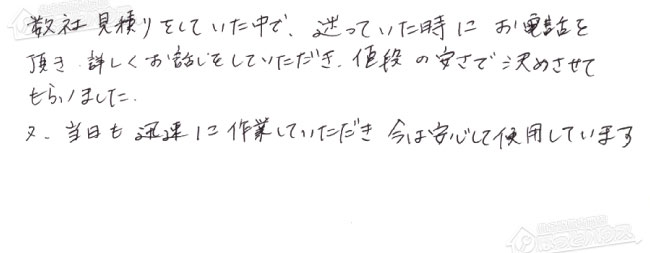 数社見積りをしていた中で、迷っていた時にお電話を
頂き、詳しくお話しをしていただき、値段の安さで決めさせて
もらいました。
又、当日も迅速に作業していただき今は安心して使用しています